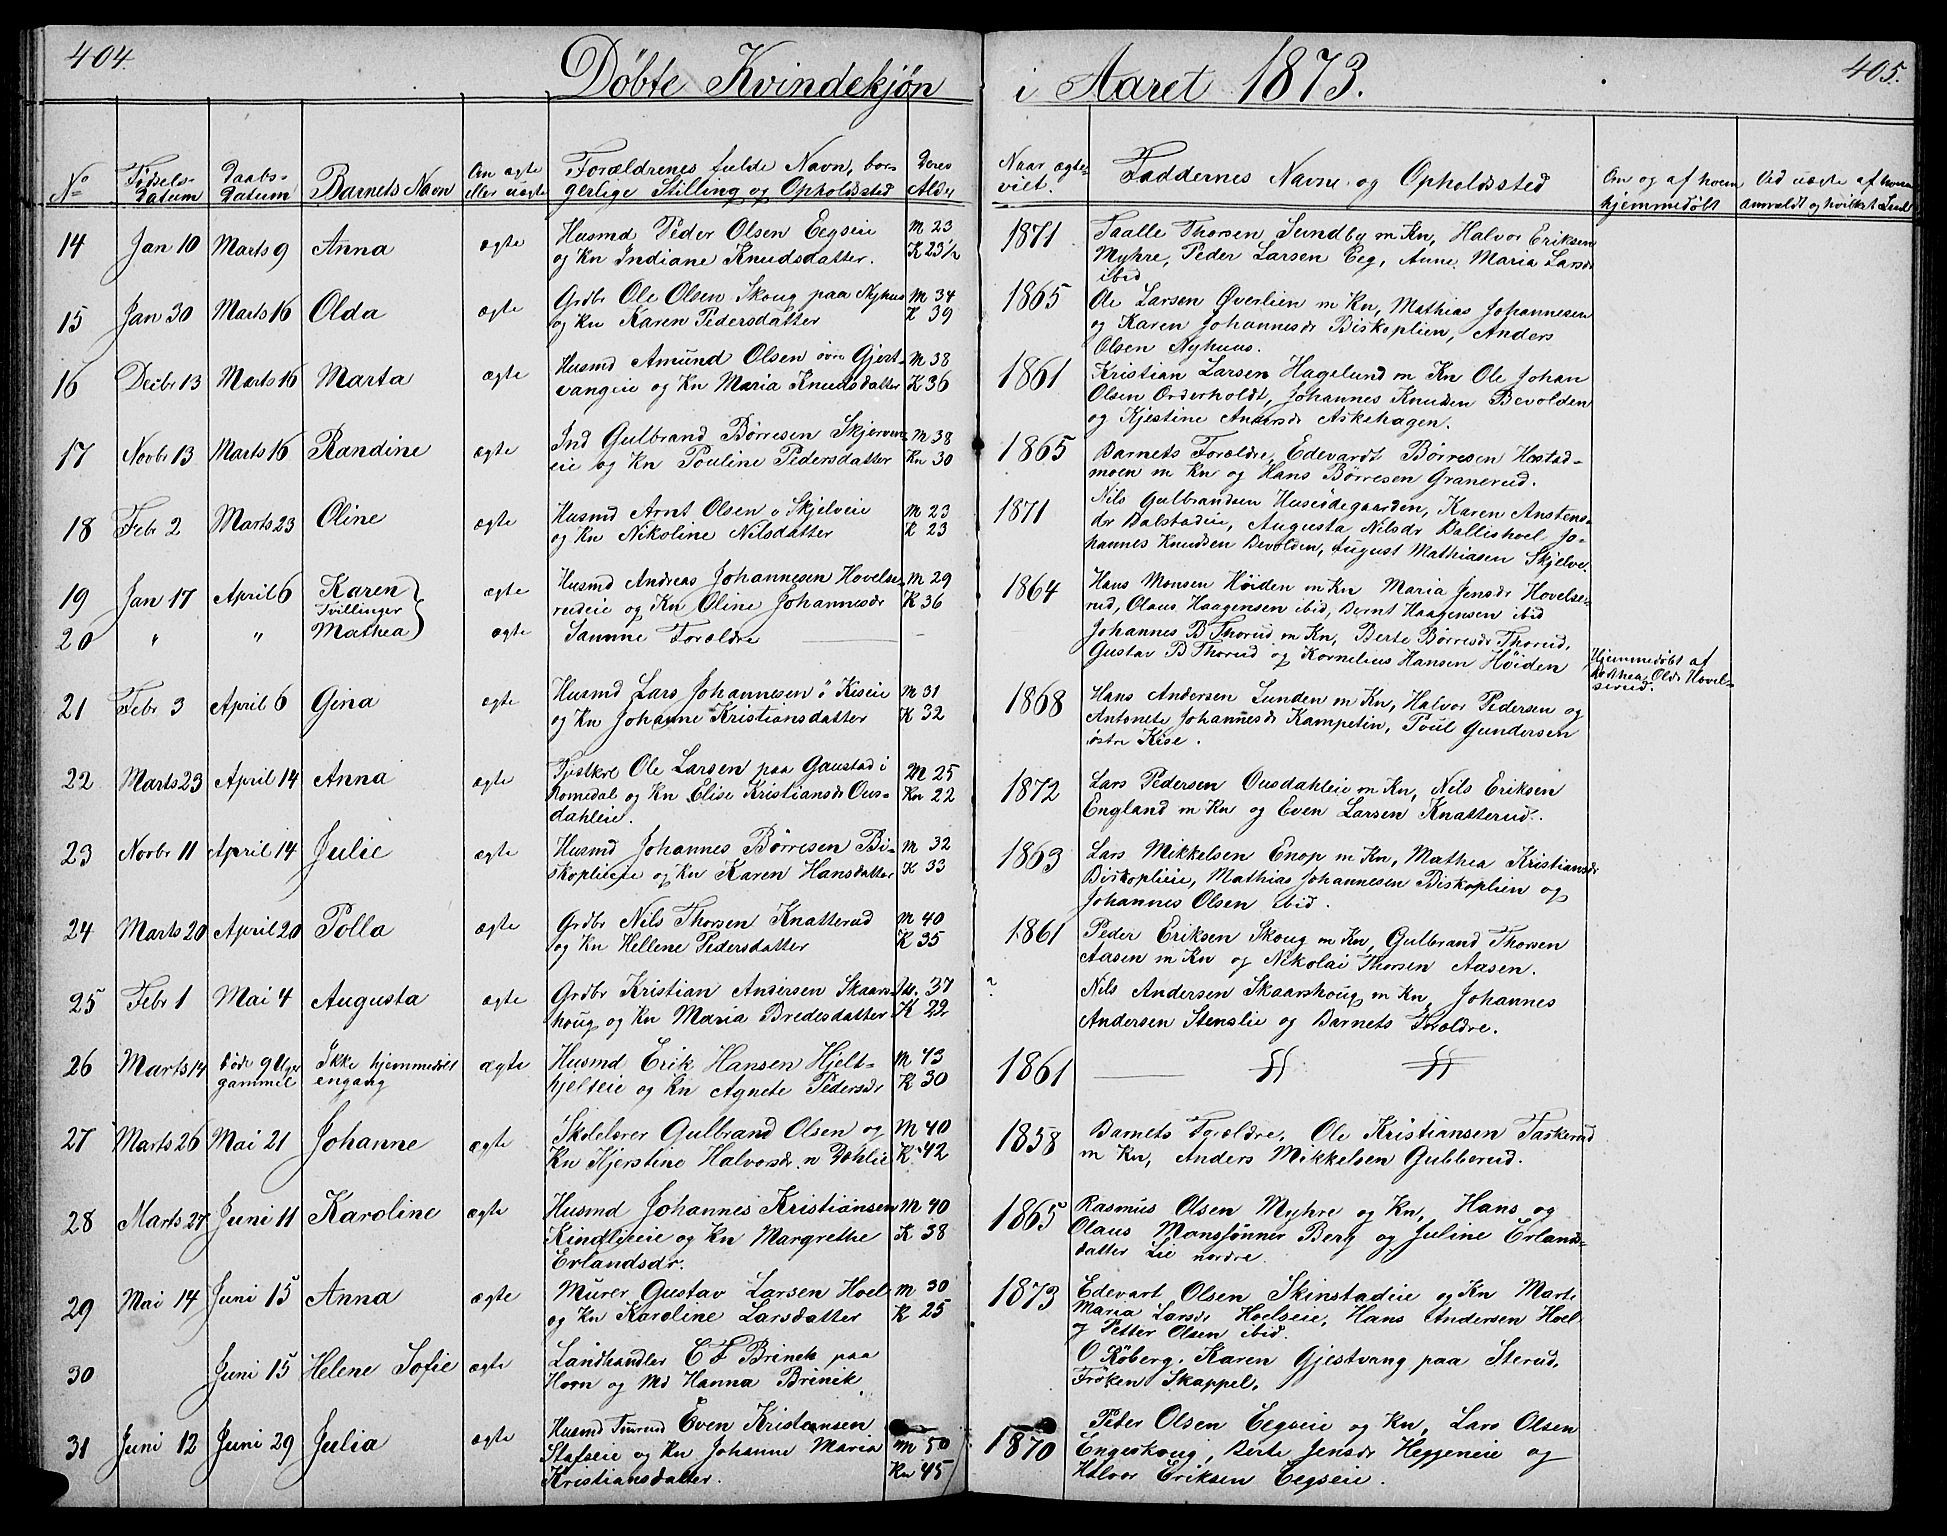 404.
Døbte Kvindekjøn
i Aaret 1873.
405.
No
Fødsels-
Datum
Daabs-
Datum
Barnets Navn
Om ægte
eller uægte
Forældrenes fulde Navn, bor-
gerlige Stilling og Opholdssted
Deres
Alder
Naar ægte-
viet.
Faddernes Navne og Opholdssted
Om og af hvem
hjemmedøbt
Ved uægte af hvem
anmeldt og hvilket
14 Jan 10 Marts 9 Anna ægte
Husmd Peder Olsen Eegseie M 23
og Kn Indiane Knudsdatter. K 23 1/2
1871 Taalle Thorsen Sundby m Kn, Halvor Eriksen
Myhre, Peder Larsen Eeg, Anne Maria Larsdr
ibid
15 Jan 30 Marts 16 Olda ægte
Grdbr Ole Olsen Skoug paa Nyhus M 34
og Kn Karen Pedersdatter K 39
1865 Ole Larsen Øverlien m Kn, Mathias Johannesen
og Karen Johannesdr Biskoplien, Anders
Olsen Nyhuus.
16 Decbr 13 Marts 16 Marta ægte
Husmd Amund Olsen øvre Gjert- M 38
vangeie og Kn Maria Knudsdatter K 36
1861 Kristian Larsen Hagelund m Kn Ole Johan
Olsen Orderholdt, Johannes Knudsen Bevolden
og Kjestine Andersdr Askehagen.
17 Novbr 13 Marts 16 Randine ægte
Ind Gulbrand Børresen Skjerven- M 38
eie og Kn Pouline Pedersdatter Kn 30
1865 Barnets Forældre, Edevardt Børresen Hestad-
moen m Kn og Hans Børresen Granerud.
18 Febr 2 Marts 23 Oline ægte
Husmd Arnt Olsen ø Skjelveie M 23
og Kn Nikoline Nilsdatter K 23
1871 Nils Gulbrandsen Husedegaarden, Karen Anstens-
dr Dalstadeie, Augusta Nilsdr Ballishoel Jo-
hannes Knudsen Bevolden, August Mathiasen Skjelve.
19 Jan 17 April 6 Karen ægte
Tvillinger
Husmd Andreas Johannesen Hovelse- M 29
rudeie og Kn Oline Johannesdr K 36
1864 Hans Monsen Høiden m Kn Maria Jensdr Hovelse-
rud, Olaus Haagensen ibid, Bernt Haagensen ibid
20 " " Mathea ægte Samme Forældre
Johannes B Thorud m Kn, Berte Børresdr Thorud,
Gustav B Thorud og Kornelius Hansen Høiden
Hjemmedøbt af
Olsdr Hovel-
serud.
21 Febr 3 April 6 Gina ægte
Husmd Lars Johannesen ö Kiseie M 31
og Kn Johanne Kristiansdatter K 32
1868 Hans Andersen Lunden m Kn, Halvor Pedersen og
Antonete Johannesdr Kampetin, Poul Gundersen
østre Kise.
22 Marts 23 April 14 Anna ægte
Ole Larsen paa Gaustad i M 25
Romedal og Kn Elise Kristiansdr Ous- Kn 22
dahleie.
1872 Lars Pedersen Ousdahleie m Kn, Nils Eriksen
England m Kn og Even Larsen Knatterud.
23 Novbr 11 April 14 Julie ægte
Husmd Johannes Børresen Bi- M 32
skoplieie og Kn Karen Hansdatter K 33
1863 Lars Mikkelsen Enop m Kn, Mathea Kristiansdr
Biskoplieie, Mathias Johannesen Biskoplien og
Johannes Olsen ibid.
24 Marts 20 April 20 Polla ægte
Grdbr Nils Thorsen Knatterud M 40
og Kn Hellene Pedersdatter K 35
1861 Peder Eriksen Skoug m Kn, Gulbrand Thorsen
Aasen m Kn og Nikolai Thorsen Aasen.
25 Febr 1 Mai 4 Augusta ægte
Grdbr Kristian Andersen Skaars- M. 37
houg og Kn Maria Bredesdatter K 22
? Nils Andersen Skaarshoug m Kn, Johannes
Andersen Stenslie og Barnets Forældre.
26 Marts 14 døde 9 Uger Ikke hjemmedøbt ægte
gammel engang
Husmd Erik Hansen Hjelt- M 43
hjelteie og Kn Agnete Pedersdr K 30
1861
27 Marts 26 Mai 21 Johanne ægte
Skolelærer Gulbrand Olsen og M 40
Kn Kjerstine Halvorsdr n Dæhlie K 42
1858 Barnets Forældre, Ole Kristiansen Taskerud
m Kn, Anders Mikkelsen Gubberud.
28 Marts 27 Juni 11 Karoline ægte
Husmd Johannes Kristiansen M 40
Kindlieie og Kn Margrethe K 38
Erlandsdr.
1865 Rasmus Olsen Myhre og Kn, Hans og
Olaus Monssønner Berg og Juline Erlands-
datter Lie nordre.
29 Mai 14 Juni 15 Anna ægte
Murer Gustav Larsen Hoel M 30
og Kn Karoline Larsdatter K 25
1873 Edevart Olsen Skinstadeie og Kn Marte
Maria Larsdr Hoelseie, Hans Andersen Hoel
og Petter Olsen ibid.
30 Juni 15 Helene Sofie ægte
Landhandler C F Brinck paa
Horn og Md Hanna Brinik
O Røberg, Karen Gjestvang paa Sterud,
Frøken Skappel.
31 Juni 12 Juni 29 Julia ægte
Husmd Tunrud Even Kristiansen
Stafseie og Kn Johanne Maria M 50
Kristiansdatter. Kn 45
1870 Peter Olsen Eegseie og Kn, Lars Olsen
Engerhoug, Berte Jensdr Heggeneie og
Halvor Eriksen Eegseie.